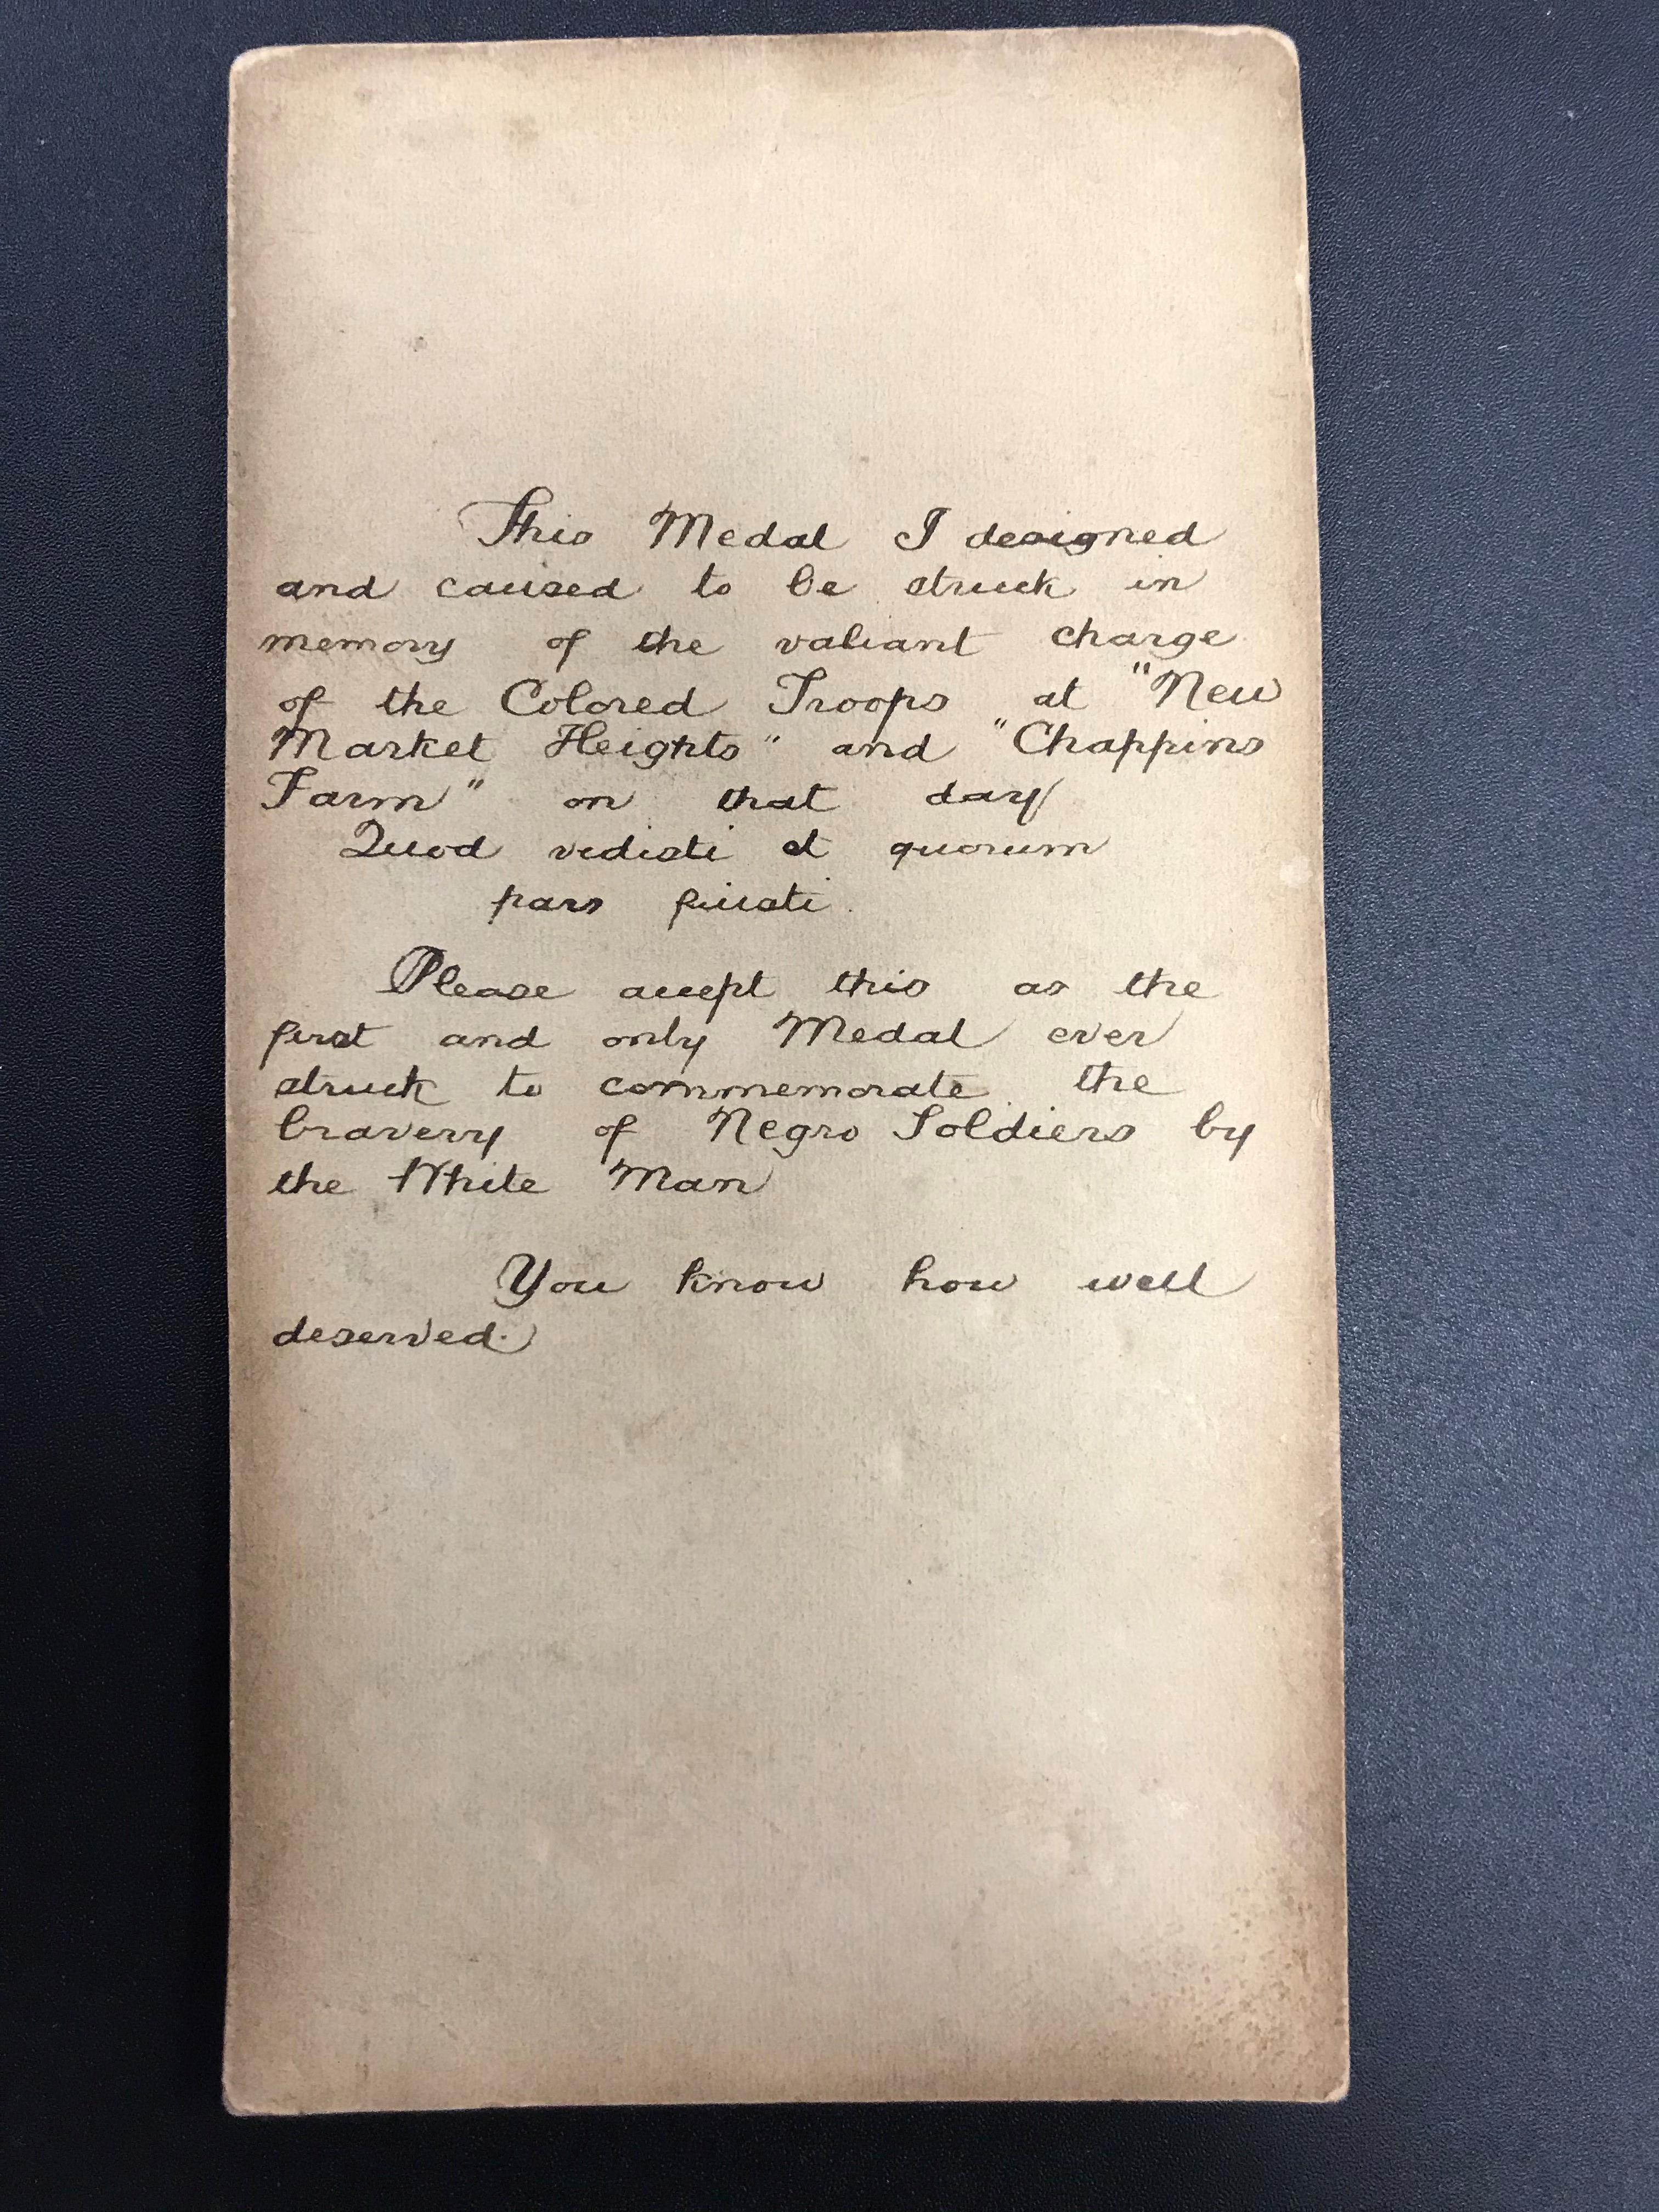 This Medal I designed
and caused to be struck in
memory of the valiant charge
of the Colored Troops at "New
Market Heights" and "Chappins
Farm" on that day
Quod vedisti et quorum
pars fuisti.
Please accept this as the
first and only Medal ever
struck to commemorate the
bravery of Negro Soldiers by
the White Man
You know how well
deserved.